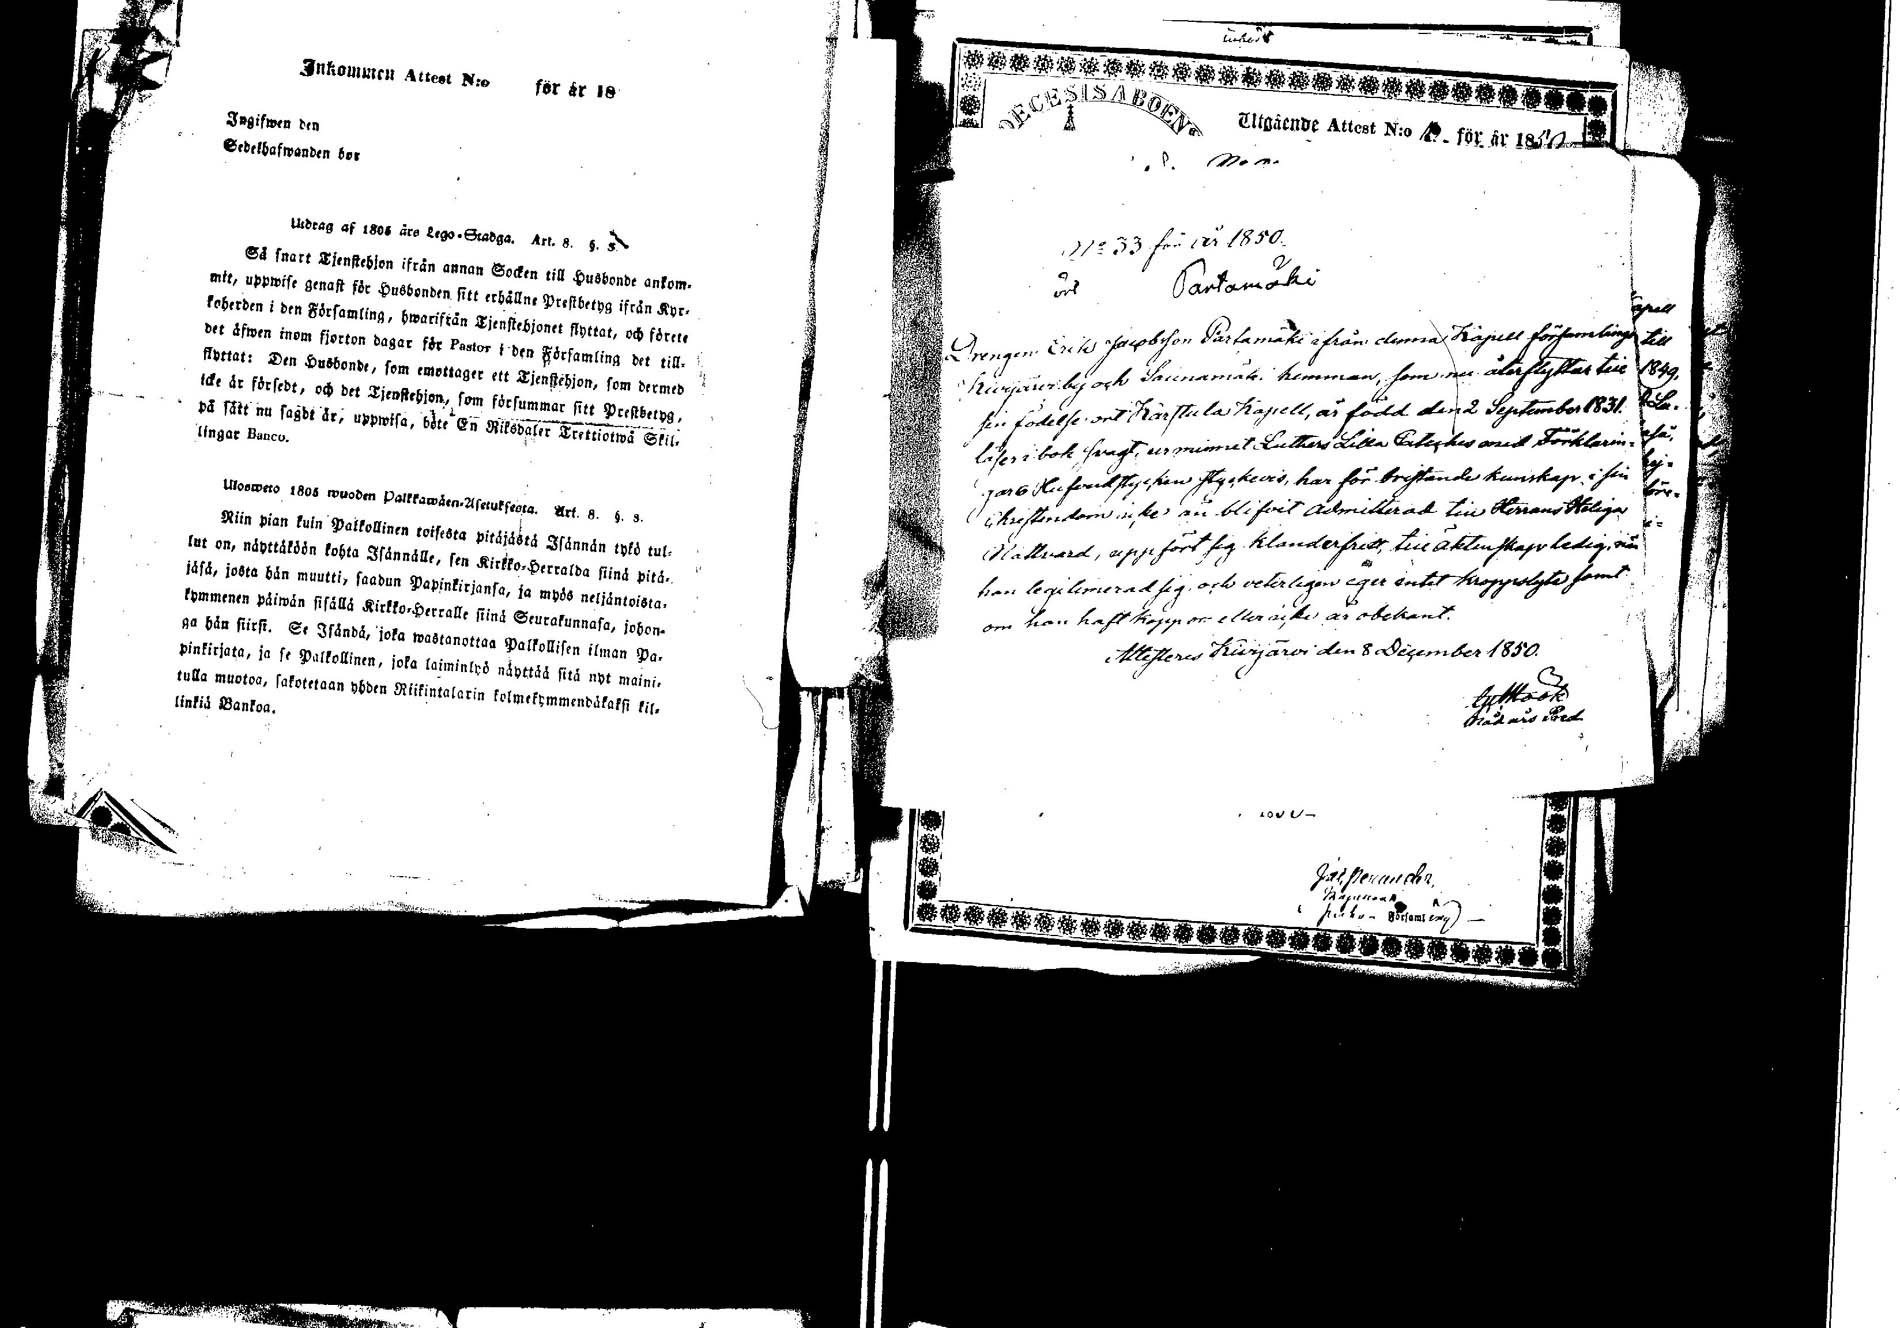 Inkommen Attest N:o för år 18
Ingifwen den
Sedelhafwanden bor
Utdrag af 1805 års Lego-Stadga. Art. 8. §. 3.
Så snart Tjenstehjon ifrån annan Socken till Husbonde ankom-
mit, uppwise genast för Husbonden sitt erhållne Prestbetyg ifrån Kyr-
koherden i den Församling, hwarifrån Tjenstehjonet flyttat, och förete
det äfwen inom fjorton dagar för Pastor i den Församling det till-
flyttat: Den Husbonde, som emottager ett Tjenstehjon, som dermed
icke är försedt, och det Tjenstehjon, som försummar sitt Prestbetyg,
på sätt nu sagdt är, uppwisa, böte En Riksdaler Trettiotwå Skil-
lingar Banco.
Ulosweto 1805 wuoden Palkkawäen-Asetuksesta. Art. 8. §. 3.
Niin pian kuin Palkollinen toisesta pitäjästä Isännän tykö tul-
lut on, näyttäköön kohta Isännälle, sen Kirkko-Herralda siinä pitä-
jäsä, josta hän muutti, saadun Papinkirjansa, ja myös neljäntoista-
kymmenen päiwän sisällä Kirkko-Herralle siinä Seurakunnasa, johon-
ga hän siirsi. Se Isändä, joka wastanottaa Palkollisen ilman Pa-
pinkirjata, ja se Palkollinen, joka laiminlyö näyttää sitä nyt maini-
tulla muotoa, sakotetaan yhden Riikintalarin kolmekymmendäkaksi kil-
linkiä Bankoa.
DECESIS ABOENS
Utgående Attest N:o för år 1850
N:o 33 för år 1850.
Partamäki
Drengen Erik Jacobsson Partamäki ifrån denna Kapell församlings
Kivijärvi by och Saunamäki hemman, som nu återflyttar till
sin födelse ort Karstula Kapell, är född den 2 September 1831.
läser i bok svagt, ur minnet Luthers Lilla Cateches med Förklarin-
gar Hufvudstycken styckevis, har för bristande kunskap i sin
christendom icke än blifvit admitterad till Herrans Heliga
Nattvard, uppfört sig klanderfritt, till äktenskap ledig, när
han legitimerad sig och veterligen äger intet kroppslyte samt
om han haft koppor eller icke är obekant.
Attesteras Kivijärvi den 8 December 1850.
apell
till
1849,
Församling